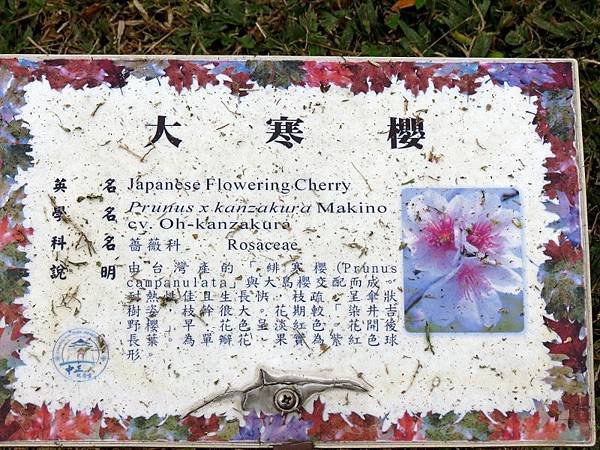 大寒櫻
英名 Japanese Flowering Cherry
學名 Prunus x kanzakura Makino
cv. Oh-kanzakura
科名 薔薇科 Rosaceae
說明 由台灣產的「緋寒櫻(Prunus
campanulata」與大島櫻交配而成。
熱性佳且生長快，枝疏，傘狀
樹 枝幹 大。花期較「染井吉
野櫻」早，花色呈淡紅色。花開後
長葉。為單瓣花，果實為紫紅色球
形。